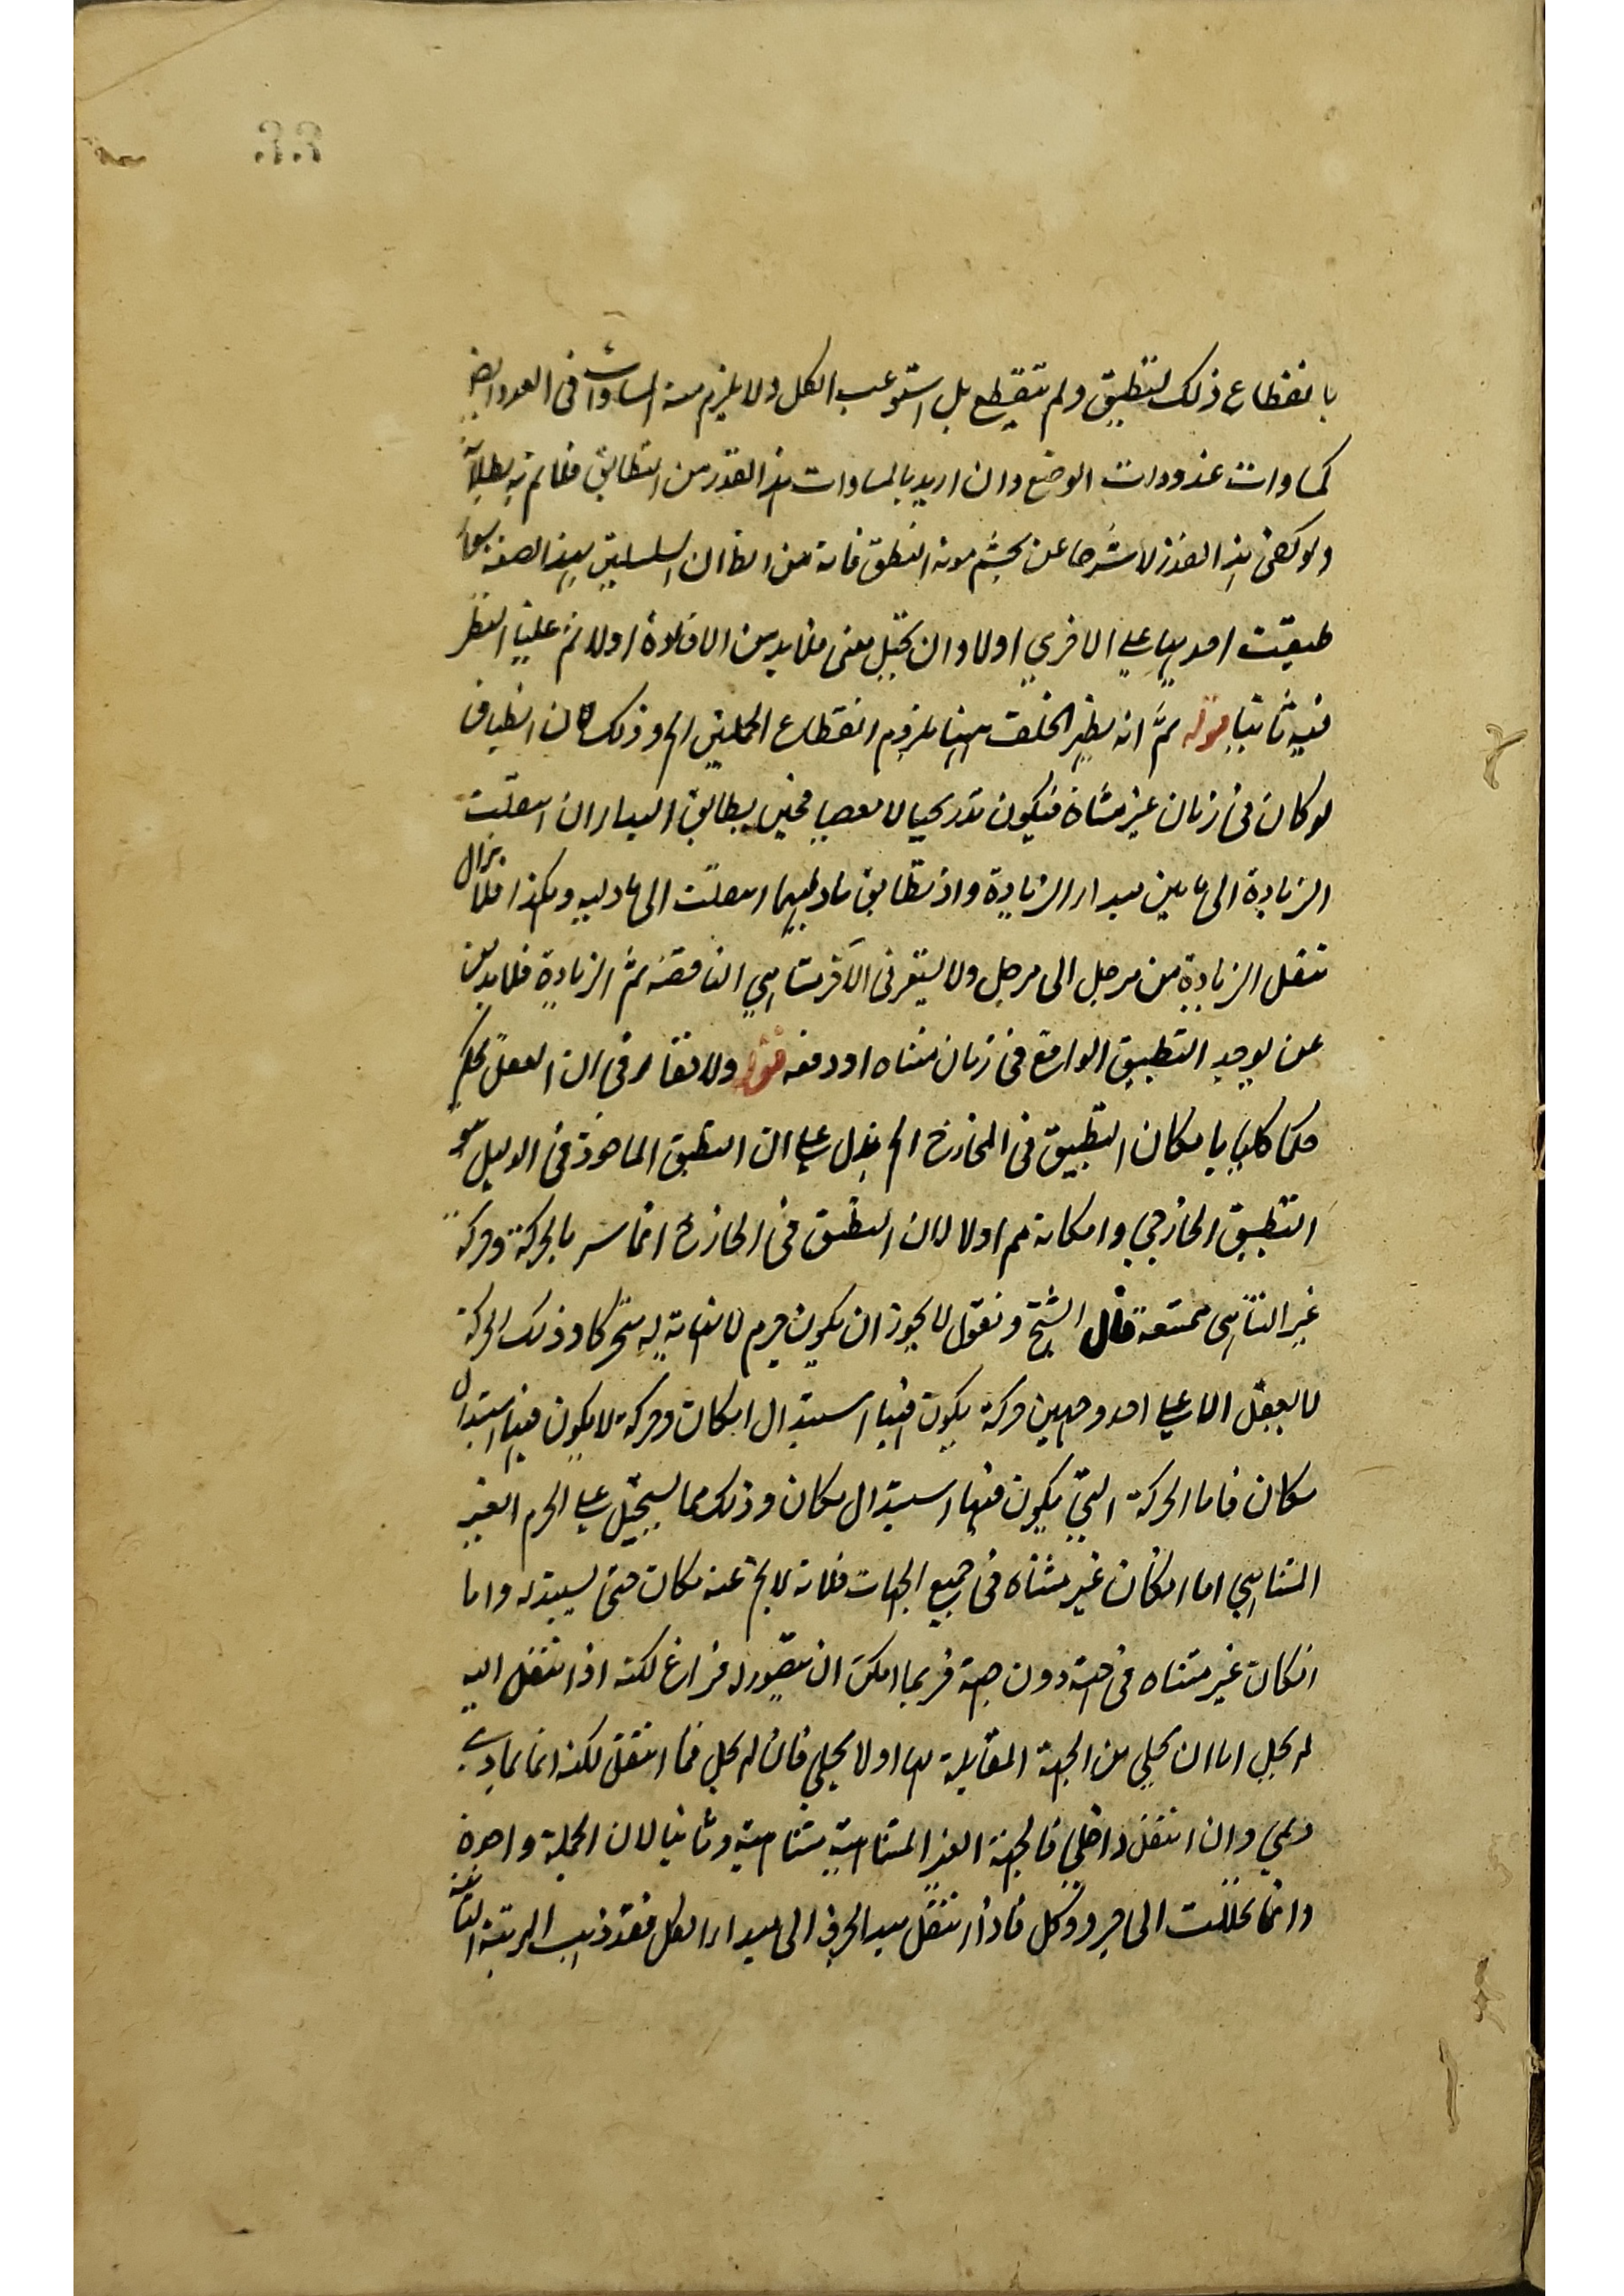 بانقطاع ذلك التطبيق ولم ينقطع بل استوعب الكل ولا يلزم منه المساوات في العدد ايضا
كمساوات عند ذوات الوضع وان اريد بالمساوات هذا القدر من التطابق فلم ثم بطلانه
ولو كفى هذا القدر لاسترحنا عن تجشم مونة التطبيق فانه من الظ ان السلسلتين بهذا الصفة سواء
طبقت احديهما على الاخرى اولا وان تخيل معنى فلا بد من الافادة اولا ثم علينا النظر
فيه ثانيا قوله ثم انه يظهر الخلف ههنا بلزوم انقطاع الجملتين الخ وذلك لان انطباق
لو كان في زمان غير متناه فيكون تدريجيا لا دفعيا فحين يطابق المبداان انتقلت
الزيادة الى ما بين مبدا الزيادة واذ تطابق ما يليهما انتقلت الى ما يليه وهكذا فلا يزال
تنتقل الزيادة من مرحل الى مرحل ولا يستقر في الآخر تناهي الناقصة ثم الزيادة فلا بد من
عن يوجد التطبيق الواقع في زمان متناه او دفعة قوله ولا خفاء في ان العقل يحكم
حكما كليا بامكان التطبيق في الخارج الخ يدل على ان التطبيق الماخوذ في الدليل هو
التطبيق الخارجي وامكانه مم اولا لان التطبيق في الخارج انما يتم بالحركة وحركة
غير المتناهي ممتنعة قال الشيخ ونقول لا يجوز ان يكون جرم لا نهاية له متحركا وذلك الحركة
لا يعقل الا على احد وجهين حركة يكون فيها استبدال امكان وحركة لا يكون فيها استبدال
مكان فاما الحركة التي يكون فيها استبدال مكان وذلك مما يستحيل على الجرم الغير
المتناهي اما انكان غير متناه في جميع الجهات فلانه لا يخ عنه مكان حتى يستبدله واما
انكان غير متناه في جهة دون جهة فربما امكن ان يتصور له فراغ لكنه اذا انتقل اليه
لم يخل اما ان يخلي من الجهة المقابلة لها اولا يخلي فان لم يخل فما انتقل لكنه انما
ونمى وان انتقل واخلى فالجهة الغير المتناهية متناهية وثانيا لان الجملة واحدة
وانما تحللت الى جزء وكل فاذا انتقل مبدا الجزء الى مبدا الكل فقد ذهب المرتبة الثانية